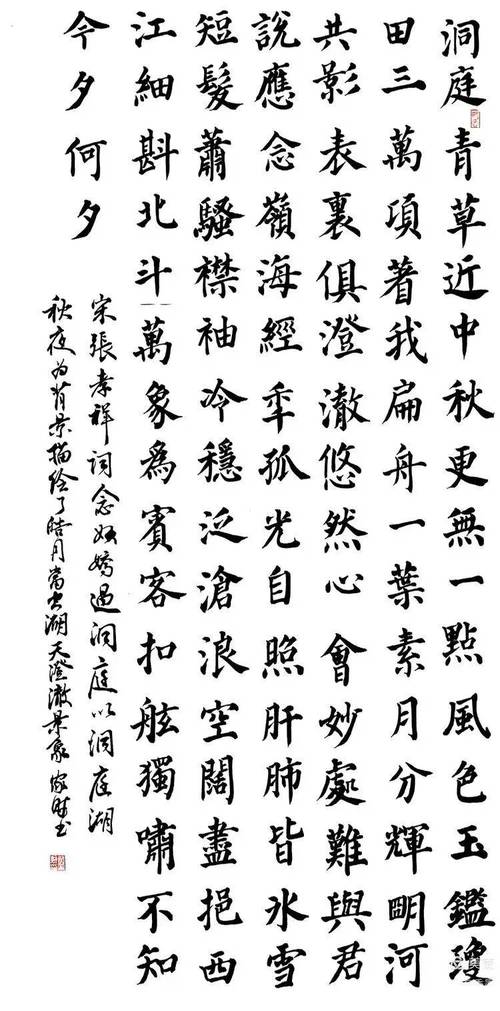 洞庭青草近中秋更無一點風色玉鑑瓊
田三萬項著我扁舟一葉素月分輝明河
共影表裏俱澄澈悠然心會妙處難與君
說應念嶺海經秊孤光自照肝肺皆氷雪
短髮蕭騷襟袖冷穩泛滄浪空闊盡挹西
江細斟北斗萬象爲賓客扣舷獨嘯不知
今夕何夕
宋張孝祥词念奴嬌過洞庭以洞庭湖
秋夜为背景描绘了皓月當空湖天澄澈景象家书